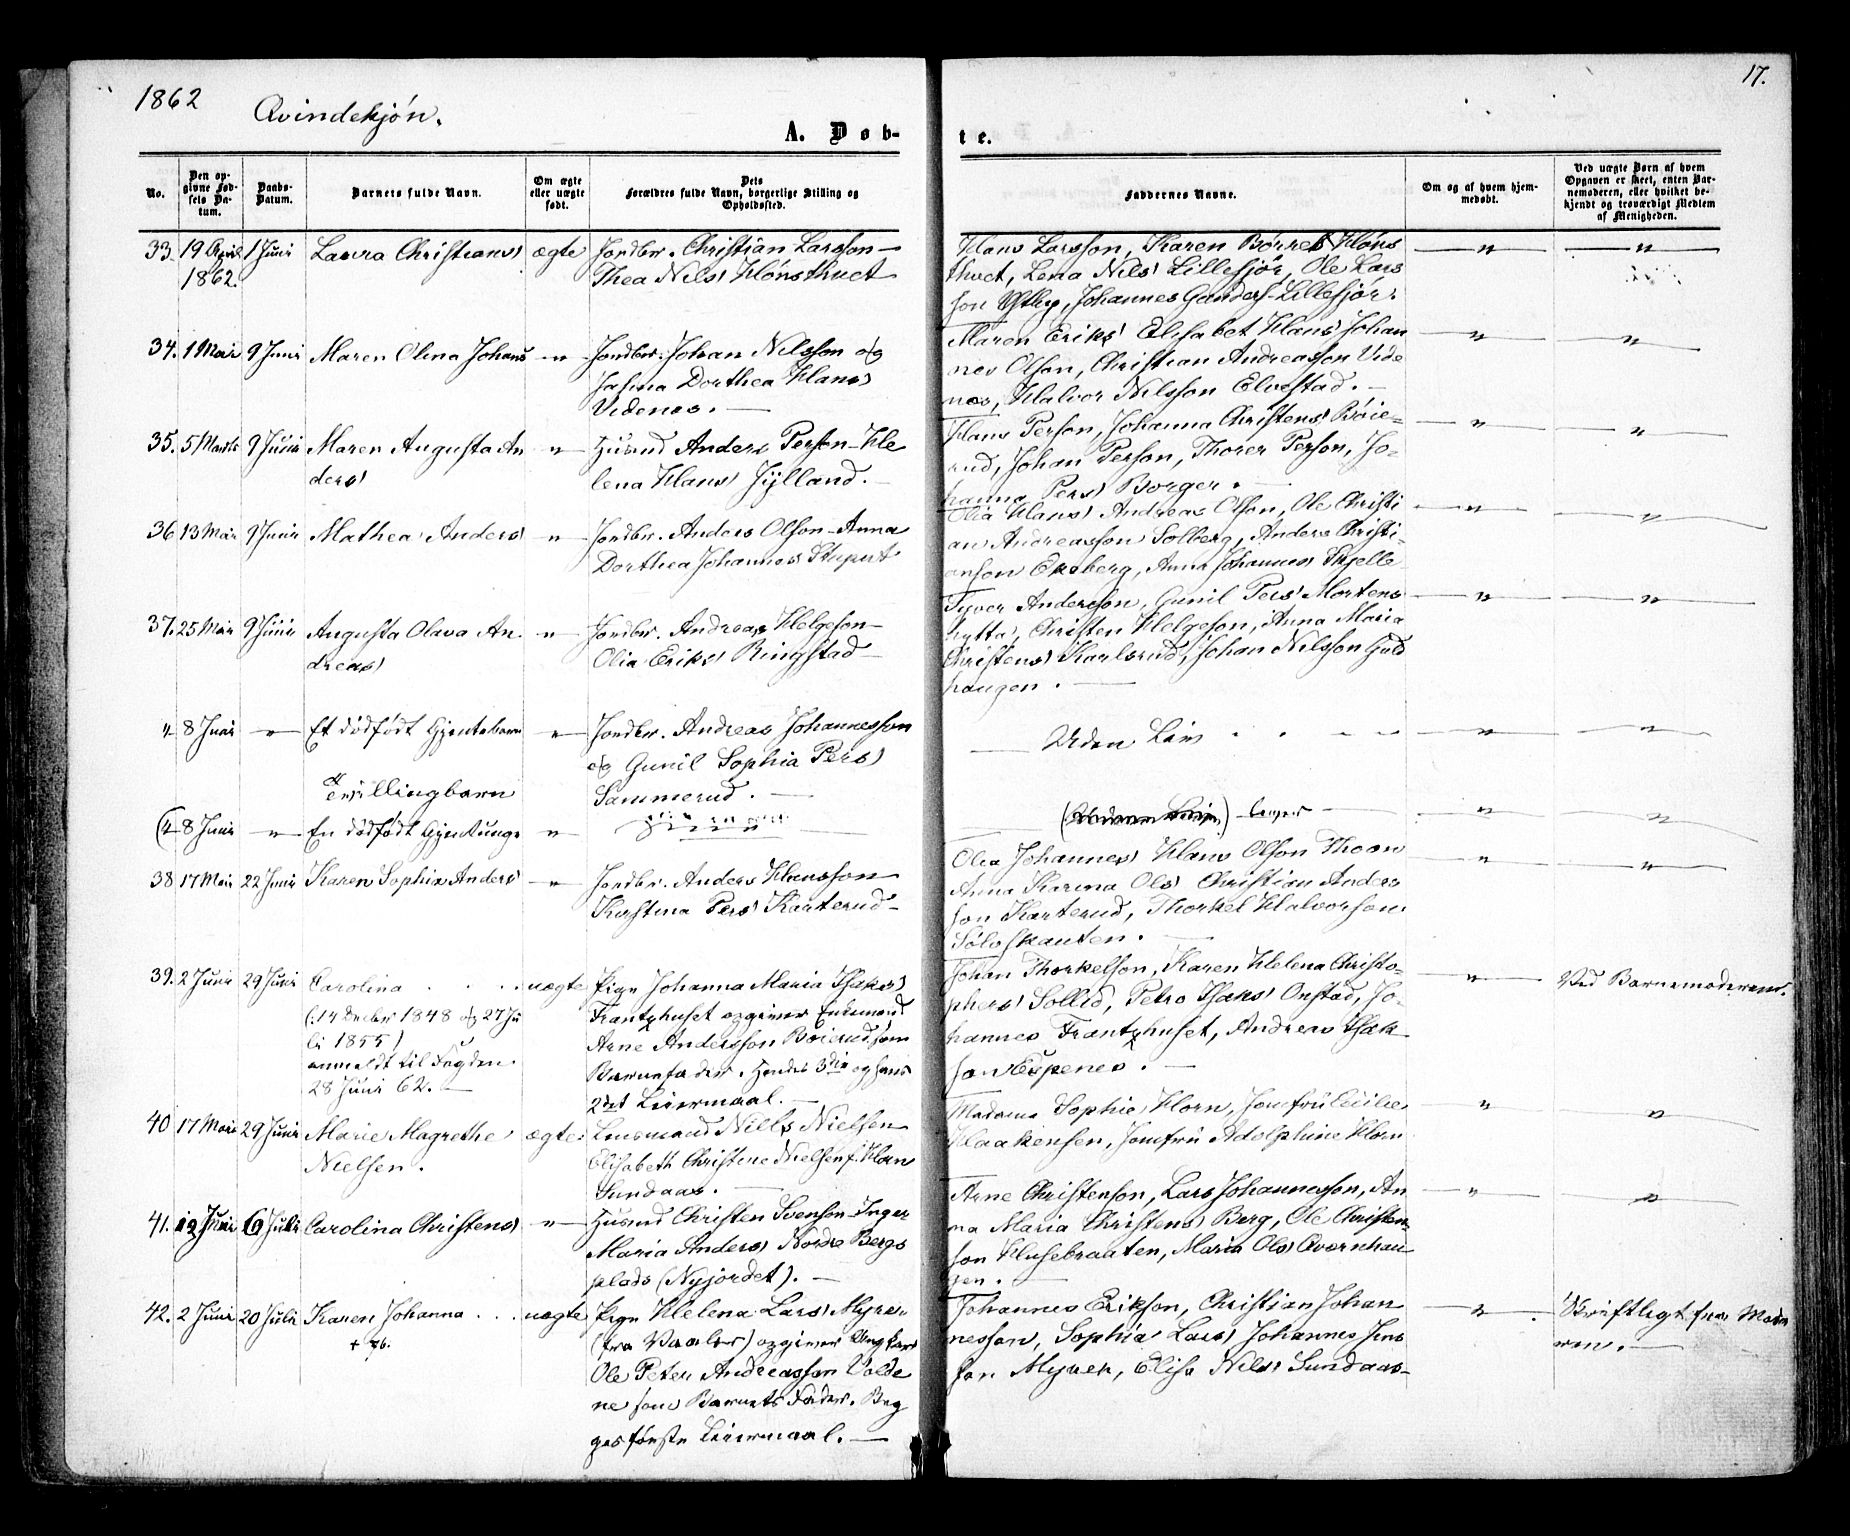 1862
Qvindekjón.
17.
A. Døb-
te.
No.
Den op-
givne Fød-
sels Da-
tum.
Daabs-
Datum.
Barnets fulde Navn.
Om ægte
eller uægte
født.
Dets
Forældres fulde Navn, borgerlige Stilling og
Opholdssted.
Faddernes Navne.
Om og af hvem hjem-
medøbt.
Ved uægte Børn af hvem
Opgaven er skeet, enten Bar-
nemoderen, eller hvilket be-
kjendt og troværdigt Medlem
af Menigheden.
33. 19 April 1 Juni Laura Christians) ægte Jordbr. Christian Larsson —
1862. Thea Nils) Hónsthvet
Hans Larsson, Karen Børres) Hóns — " — — " —
thvet, Lena Nils) Lillesjør, Ole Lars
son Ystby, Johannes Gunders) Lillesjór.
34. 1 Mai 9 Juni Maren Olina Johans — " — Jordbr. Johan Nilsson og
Dorthea Hans)
Videnes. —
Maren Eriks) Elisabet Hans) Johan — " — — " —
nes Olson, Christian Andreasson Vide
nes, Halvor Nilsson Elvestad. —
35. 5 9 Juni Maren Augusta An — " — Husmd Anders Person — He
ders) lena Hans) Jylland. —
Hans Person, Johanna Christens) Bóie= — " — — " —
rud, Johan Person, Thorer Person, Jo-
hanna Pers) Borger. —
36 13 Mai 9 Juni Mathea Anders) — " — Jordbr. Anders Olson — Anna
Dorthea Johannes)
Olia Hans) Andreas Olson, Ole Christi — " — — " —
an Andreasson Solberg, Anders Christi-
anson Ekeberg, Anna Johannes) Skjelle
37. 25 Mai 9 Juni Augusta Olava An. — " — Jordbr. Andreas Helgeson —
dreas) Olia Eriks) Ringstad —
Anderson, Gunil Pers) Mortens — " — — " —
hytta, Christen Helgeson, Anna Maria
Christens) Karlsrud, Johan Nilsson Guld
haugen. —
" 8 Juni — " — Et dódfódt Pjentebarn — " — Jordbr. Andreas Johannesson
og Gunil Sophia Pers)
Sammerud. —
— Uden Liv — " — — " —
Tvillingbarn
(" 8 Juni — " — En dódfódt — "
— " — — " —
38 17 Mai 22 Juni Karen Sophia Anders) — " — Jordbr. Anders Hansson
Kirstina Pers) Karterud —
Olia Johannes) Hans Olson Thoen — " — — " —
Anna Karina Ols) Christian Anders
son Karterud, Thorkel Halvorson
Sólvskauten. —
39. 2 Juni 29 Juni Carolina . . . uægte Pige Johanna Maria Isaks)
(: 14 Decber 1848 og 27 Ju Frantzhuset opgiver Enkemand
li 1855) Arne Andersson Bóierud som
anmeldt til Fogden Barnefader. Hendes 3die og hans
28 Juni 62. — 2det Leiermaal. —
Johan Thorkelson, Karen Helena Christo- — " — Ved Barnemoderen.
phers) Sollid, Petra Isaks) Onstad, Jo-
hannes Frantzhuset, Andreas Isak
son Espenes. —
40 17 Mai 29 Juni Marie Magrethe ægte Lensmand Niels Nielsen
Nielsen. Elisabeth Christine Nielsen f. Horn
Sundaas. —
Madame Sophie Horn, Jomfru Cecilie " — " —
Haakensen, Jomfru Adolphine Horn
41. 12 Juni 6 Juli Carolina Christens) — " — Husmd Christen Svenson — Inger
Maria Anders) Nordre Bergs
plads (Nyjordet). —
Arne Christenson, Lars Johannesson, An — " — — " —
na Maria Christens) Berg, Ole Christen-
son Husebraaten, Maria Ols) Qvernhau
gen. —
42. 2 Juni 20 Juli Karen Johanna . . . uægte Pige Helena Lars) Myre-
(fra Vaaler) opgiver Ungkarl
Ole Peter Andreasson Volde
ne som Barnets Fader. Beg
ges fórste Leiermaal. —
Johannes Erikson, Christian Johan — " — Skriftligt fra Mode
nesson, Sophia Lars) Johannes Jens ren. —
son Myrer, Elise Nils) Sundaas —